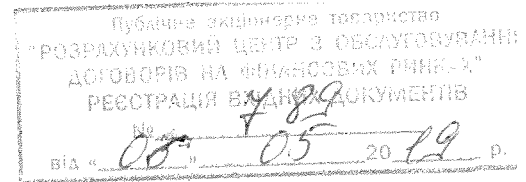 Публічне акціонерне товариство
"РОЗРАХУНКОВИЙ ЦЕНТР З ОБСЛУГОВУВАННЯ
ДОГОВОРІВ НА ФІНАНСОВИХ РИНКАХ"
РЕЄСТРАЦІЯ ВХІДНИХ ДОКУМЕНТІВ
№ 789
від "08" 05 2019 р.